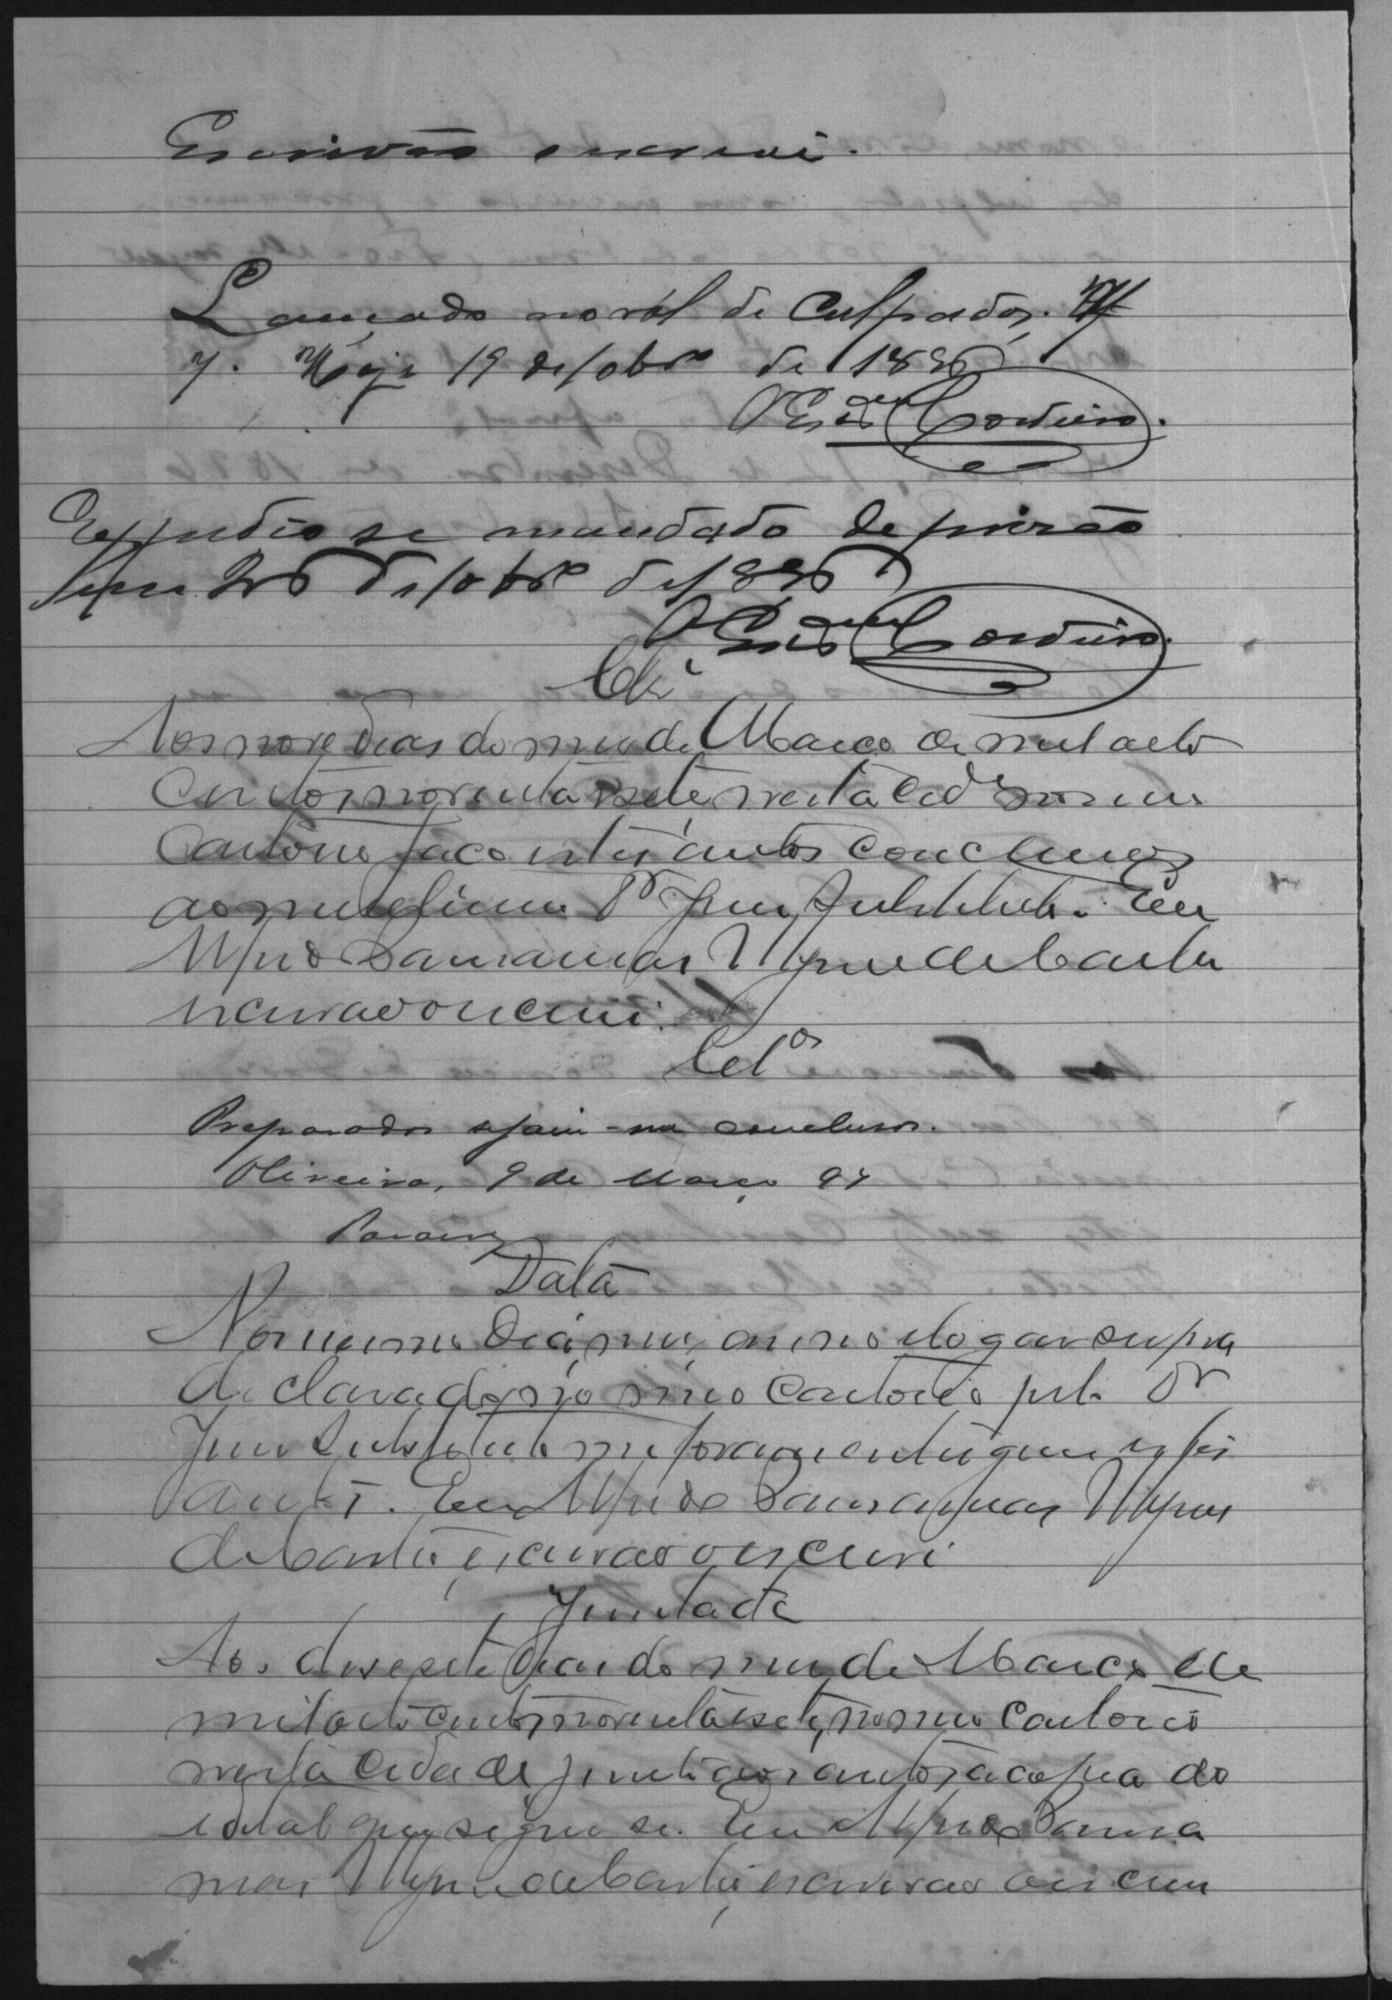 Escrivão o escrevi.
Lançado no rol de Culpados.
7. Hoje 19 de 10brº de 1896
O Escrm Cordeiro.
Expedio se mandado de prisão
em 26 de 10brº de 1896
O Escrm Cordeiro.
Clz
Aos nove dias do mes de Março de mil oito
centos noventa e sete nesta Cide no meu
Cartorio faço estes autos conclusos
ao Dr Juiz Substituto. Eu
de Castro
escrivão o escrevi.
Clos
Preparados sejam-me conclusos.
Oliveira, 9 de Março 97
Data
No mesmo dia, mes, anno e logar supra
declarados no meo Cartorio pelo Dr
Juiz Substituto me foram entregues estes
autos. Eu
de Castro escrivão o escrevi
Juntada
Aos desesete dias do mes de Março de
mil oito centos noventa e sete, no meu Cartorio
nesta Cidade junto aos autos a copia do
edital que segue se. Eu
de Castro, escrivão o escrevi